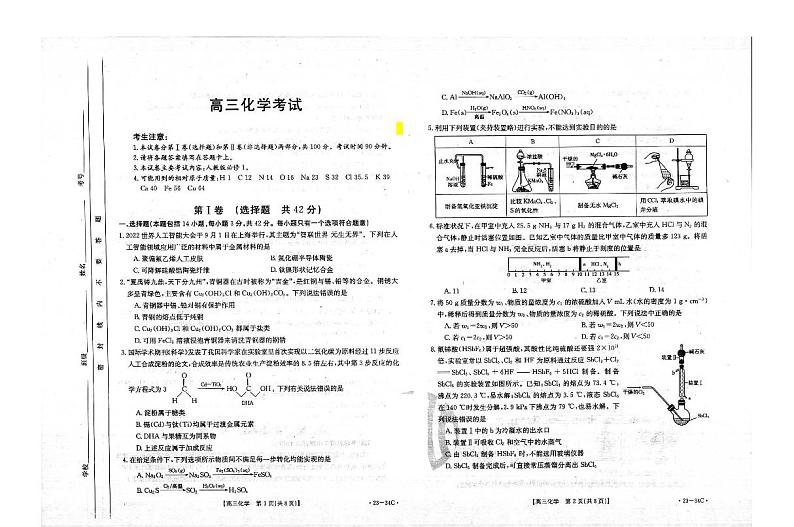 高三化学考试
考生注意:
1.本试卷分第Ⅰ卷(选择题)和第Ⅱ卷(非选择题)两部分,共100分。考试时间90分钟。
2.请将各题答案填写在答题卡上。
3.本试卷主要考试内容:人教版必修1。
4.可能用到的相对原子质量:H 1 C 12 N 14 O 16 Na 23 S 32 Cl 35.5 K 39
Ca 40 Fe 56 Cu 64
第Ⅰ卷 (选择题 共42分)
一、选择题(本题包括14小题,每小题3分,共42分。每小题只有一个选项符合题意)
1.2022世界人工智能大会于9月1日在上海举行,其主题为“智联世界 元生无界”。下列在人
工智能领域应用广泛的材料中属于金属材料的是
A.聚偏氟乙烯人工皮肤 B.氮化硼半导体陶瓷
C.可降解硅酸铝陶瓷纤维 D.钛镍形状记忆合金
青铜器在古时被称为“吉金”,是红铜与锡、铅等的合金。铜锈大
多呈青绿色,主要含有Cu₂(OH)₃Cl和Cu₂(OH)₂CO₃。下列说法错误的是
A.青铜器中锡、铅对铜有保护作用
B.青铜的熔点低于纯铜
C.Cu₂(OH)₃Cl和Cu₂(OH)₂CO₃都属于盐类
D.可用FeCl₃溶液浸泡青铜器来清洗青铜器的铜锈
3.国际学术期刊《科学》发表了我国科学家在实验室里首次实现以二氧化碳为原料经过11步反应
人工合成淀粉的论文,合成效率是传统农业生产淀粉效率的8.5倍左右,其中第3步反应的化
学方程式为3 DHA ,下列有关说法错误的是
A.淀粉属于糖类
B.镉(Cd)与钛(Ti)均属于过渡金属元素
C.DHA与果糖互为同系物
D.上述反应属于加成反应
4.在给定条件下,下列选项所示物质间不满足每一步转化均能实现的是
高三化学 第1页(共8页) ·23-34C·
C. Al NaOH(aq) NaAlO₂ CO₂(g) Al(OH)₃
D. Fe(s) H₂O(g) 高温 Fe₃O₄(s) HNO₃(aq) Fe(NO₃)₃(aq)
5.利用下列装置(夹持装置略)进行实验,不能达到实验目的的是
A B C D
止水夹 浓盐酸 干燥的 MgCl₂·6H₂O
稀硫酸 Fe KMnO₄ 碱石灰
制备氢氧化亚铁沉淀 比较KMnO₄、Cl₂、S的氧化性 制备无水MgCl₂ 用CCl₄萃取碘水中的碘并分液
6.标准状况下,在甲室中充入25.5 g NH₃与17 g H₂的混合气体,乙室中充入HCl与N₂的混
合气体,静止时活塞位置如图。已知乙室中气体的质量比甲室中气体的质量多123 g。将活
塞a去掉,当HCl与NH₃完全反应后,活塞b将静止于刻度的是
NH₃、H₂ a HCl、N₂ b
0 1 2 3 4 5 6 7 8 9 10 11 12 13 14 15
甲室 乙室
A. 11 B. 12 C. 13 D. 14
7.将50 g质量分数为w₁、物质的量浓度为c₁的浓硫酸加入V mL水(水的密度为1 g·cm⁻³)
中,稀释后得到质量分数为w₂、物质的量浓度为c₂的稀硫酸。下列说法中正确的是
A.若w₁=2w₂,则V>50 B.若w₁=2w₂,则V=50
C.若c₁=2c₂,则V>50 D.若c₁=2c₂,则V<50
8.氟锑酸(HSbF₆)属于超强酸,其酸性比纯硫酸还要强2×10¹⁹
倍。实验室常以SbCl₃、Cl₂和HF为原料通过反应SbCl₃+Cl₂
SbCl₅、SbCl₅+6HF HSbF₆+5HCl制备。制备
SbCl₅的实验装置如图所示。已知:SbCl₃的熔点为73.4 ℃,
沸点为220.3 ℃,易水解;SbCl₅的熔点为3.5 ℃,液态SbCl₅
在140 ℃时发生分解,2.9 kPa下沸点为79 ℃,也易水解。下
列说法错误的是
A.装置Ⅰ中的b为冷凝水的出水口
B.装置Ⅱ可吸收Cl₂和空气中的水蒸气
C.由SbCl₅制备HSbF₆时,不能选用玻璃仪器
D.SbCl₅制备完成后,可直接常压蒸馏分离出SbCl₅
碱石灰
装置Ⅱ
装置Ⅰ
干燥的Cl₂
SbCl₃
高三化学 第2页(共8页) ·23-34C·